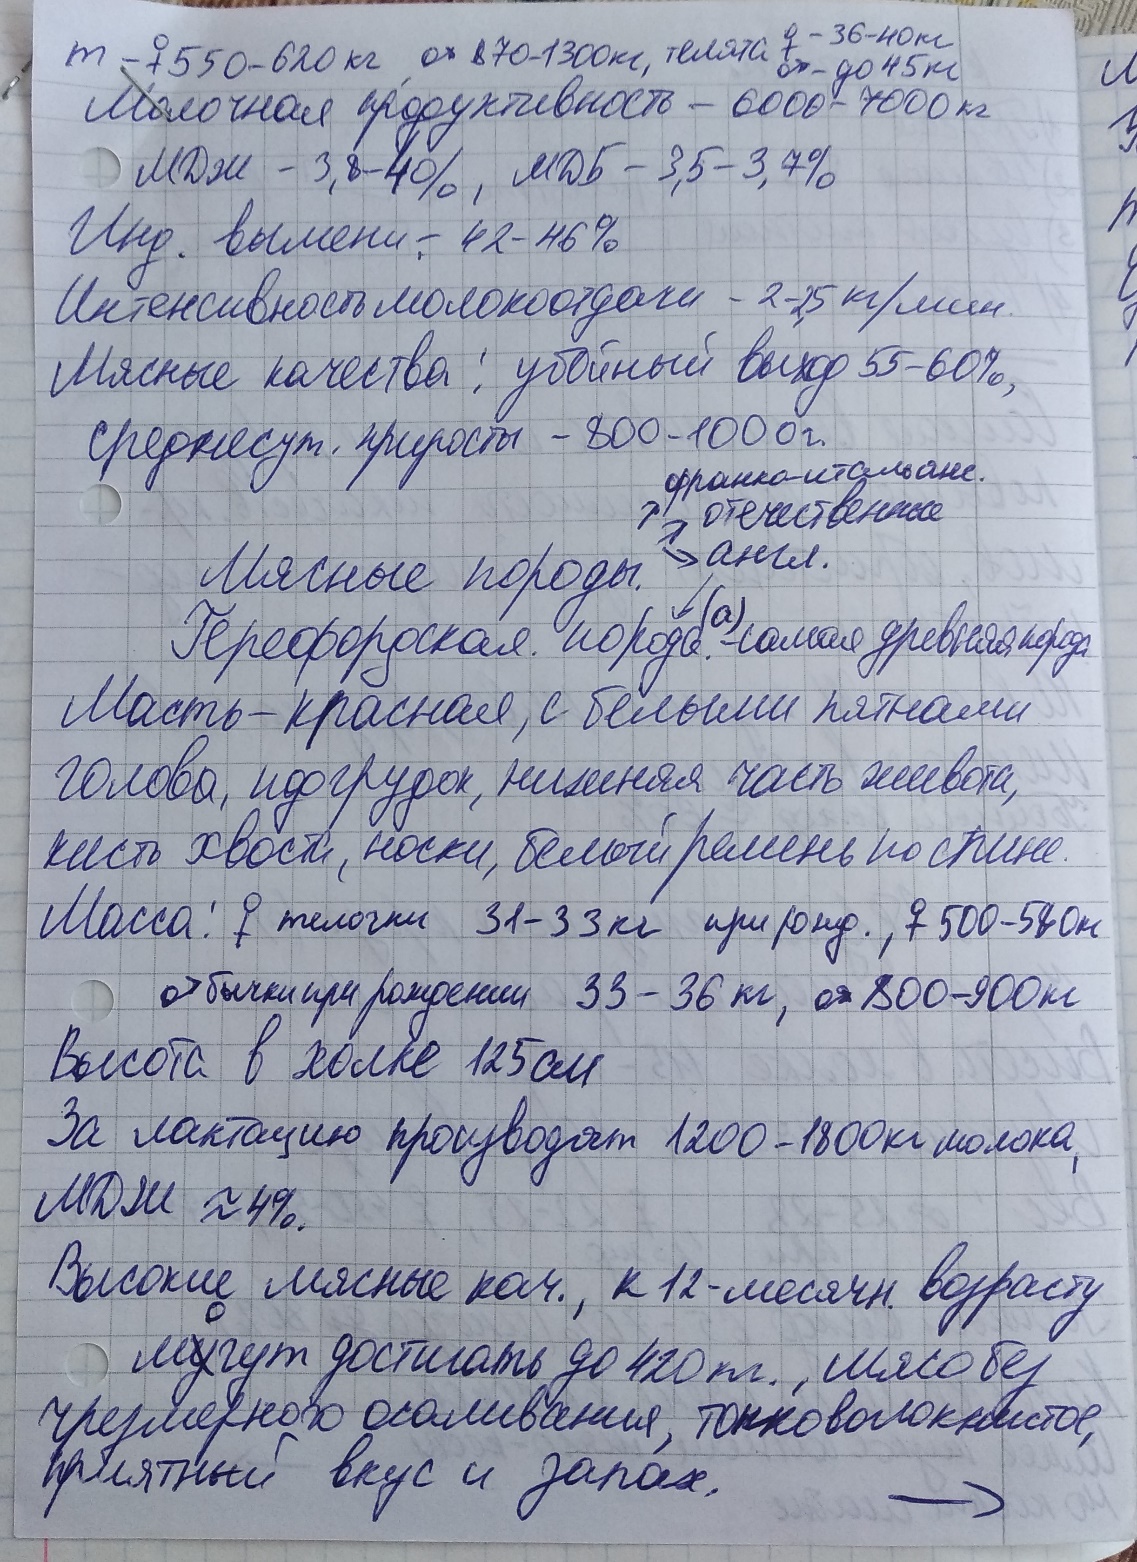 m - ♀550-620 кг, ♂ 870-1300кг, телята ♀ - 36-40кг
♂ - до 45 кг
Молочная продуктивность - 6000-7000 кг
МДЖ - 3,8-40%, МДБ - 3,5-3,7%
Инд. вымени - 42-46%
Интенсивность молокоотдачи - 2-2,5 кг/мин.
Мясные качества: убойный выход 55-60%,
среднесут. приросты - 800-1000г.
франко-итальянс.
отечественные
Мясные породы. англ.
(а)
Герефордская порода. - самая древняя порода
Масть - красная, с белыми пятнами
голова, подгрудок, нижняя часть живота,
кисть хвоста, носки, белый ремень по спине.
Масса: ♀ телочки 31-33кг при рожд., ♀ 500-580кг
♂ бычки при рождении 33-36 кг, ♂ 800-900кг
Высота в холке 125см
За лактацию производят 1200-1800кг молока,
МДЖ ≈ 4%.
Высокие мясные кач., к 12-месячн. возрасту
могут достигать до 420кг., мясо без
чрезмерного осаливания, тонковолокнистое,
приятный вкус и запах.
→